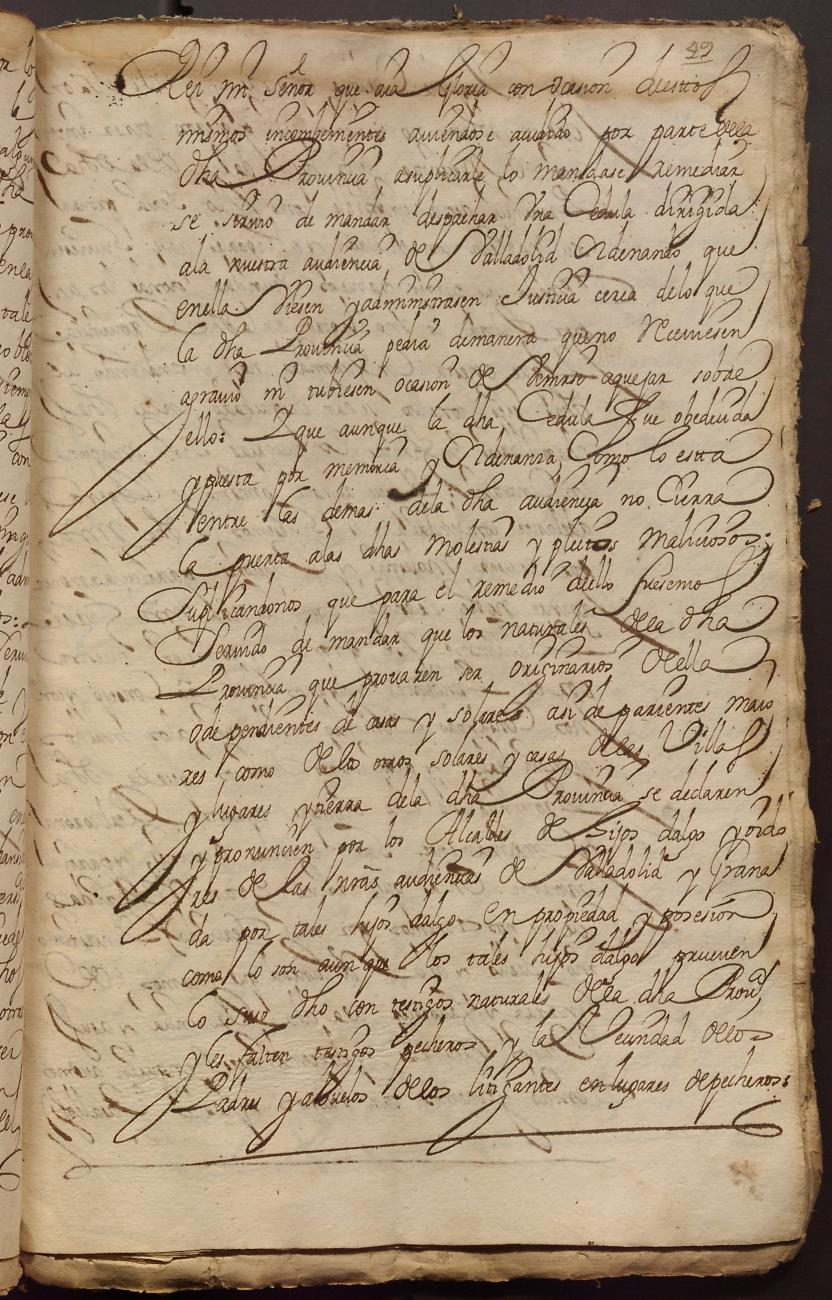 49
Rei mi señor que aia Gloria con ocasion de estos
mismos incombenientes aviendose acudido por parte dela
dha Provincia a suplicarle lo mandase remediar
se sirvio de mandar despachar una Cedula dirigida
ala nuestra audiencia de Valladolid Ordenando que
enella diesen y administrasen Justicia cerca delo que
la dha Provincia pedia demanera que no Reciviesen
agravio ni tubiesen ocasion de venirse aquejar sobre
ello: Y que aunque la dha Cedula fue obedecida
y puesta por memoria y Ordenanza, Como lo estta
entre las demas dela dha audiencia no Cierra
la puerta alas dhas molestias y pleitos maliciosos:
Suplicandonos que para el remedio dello fuesemos
Servido de mandar que los naturales dela dha
Provincia que provaren ser originarios della
o dependientes de casas y solares asi de parientes maio
res como de los otros solares y casas delas Villas
y lugares y tierra dela dha Provincia se declaren
y pronuncien por los Alcaldes de hijos dalgo y oido
res de las nras audiencias de Valladolid y Grana
da por tales hijos dalgo en propiedad y posesion
como lo son aunque los tales hijos dalgo prueven
lo suso dho con testigos naturales dela dha Prova
y les falten testigos pecheros y la Vecindad delos
Padres y abuelos delos litigantes en lugares de pecheros: